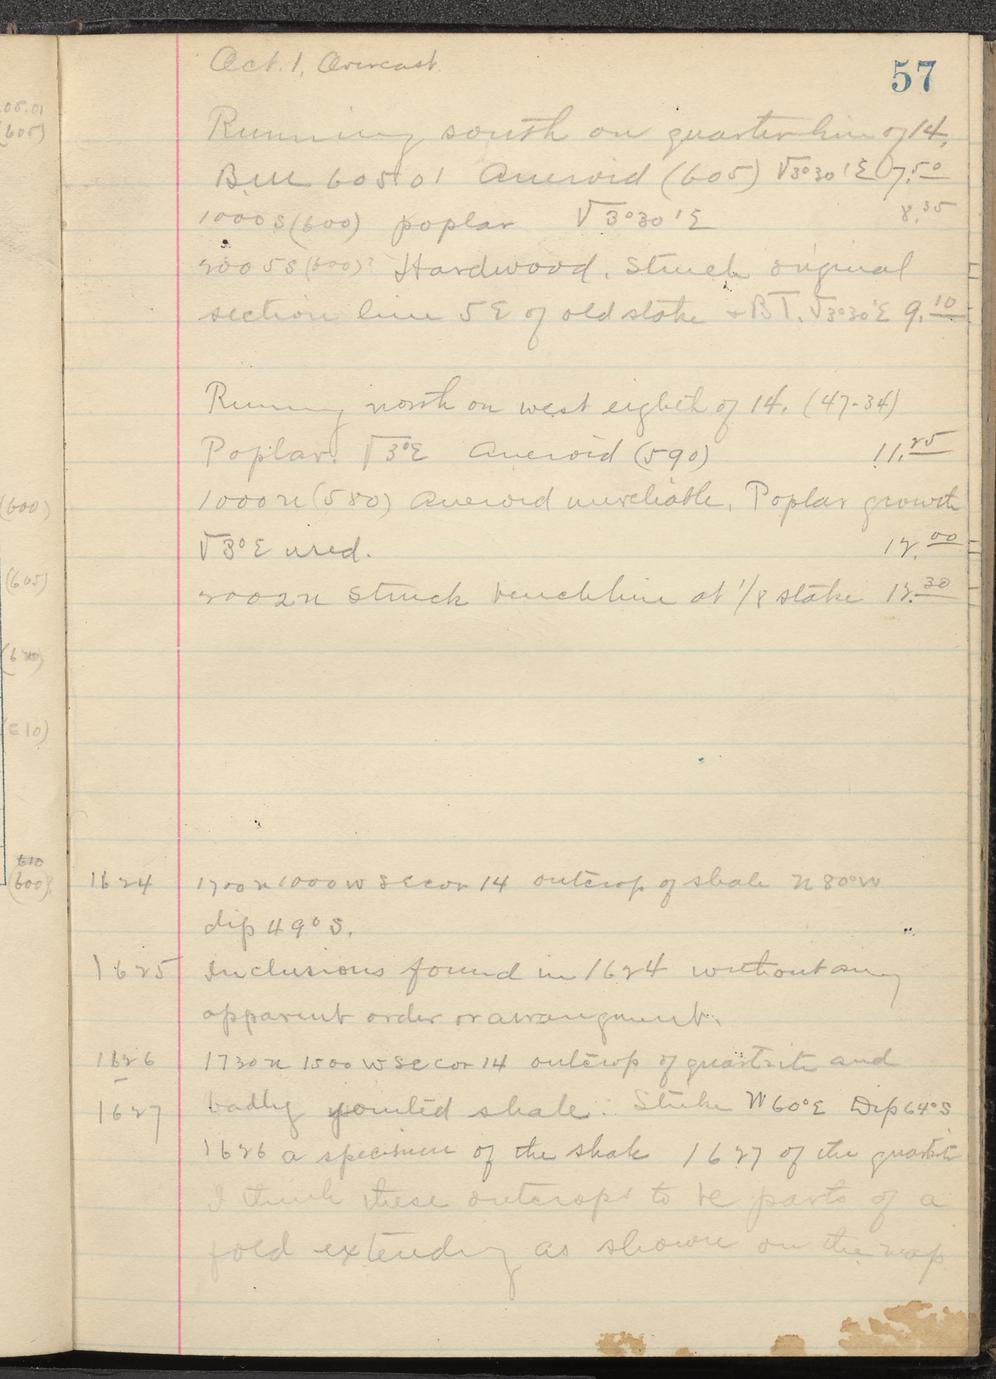 57
Oct. 1, Overcast.
Running south on quarter line of 14.
B.M. 605.01 Aneroid (605) V3°30'E 7.50
1000 S (600) poplar V 3°30'E 8.35
2005 S (600)? Hardwood. Struck original
section line 5 E of old stake + B.T. V3°30'E 9.10
Running north on west eighth of 14. (47-34)
Poplar. V3°E Aneroid (590) 11.25
1000 N (580) Aneroid unreliable. Poplar growth
V3°E used. 12.00
2002 N Struck benchline at 1/8 stake 12.30
1624 1700 N 1000 W SE cor 14 outcrop of shale N 80° W
dip 49° S.
1625 Inclusions found in 1624 without any
apparent order or arrangment.
1626 1730 N 1500 W SE cor 14 outcrop of quartzite and
–
1627 badly jointed shale. Strike N 60° E Dip 64° S
1626 a specimen of the shale 1627 of the quartzite
I think these outcrops to be parts of a
fold extending as shown on the map
05.01
(605)
(600)
(605)
(610)
610
(600)